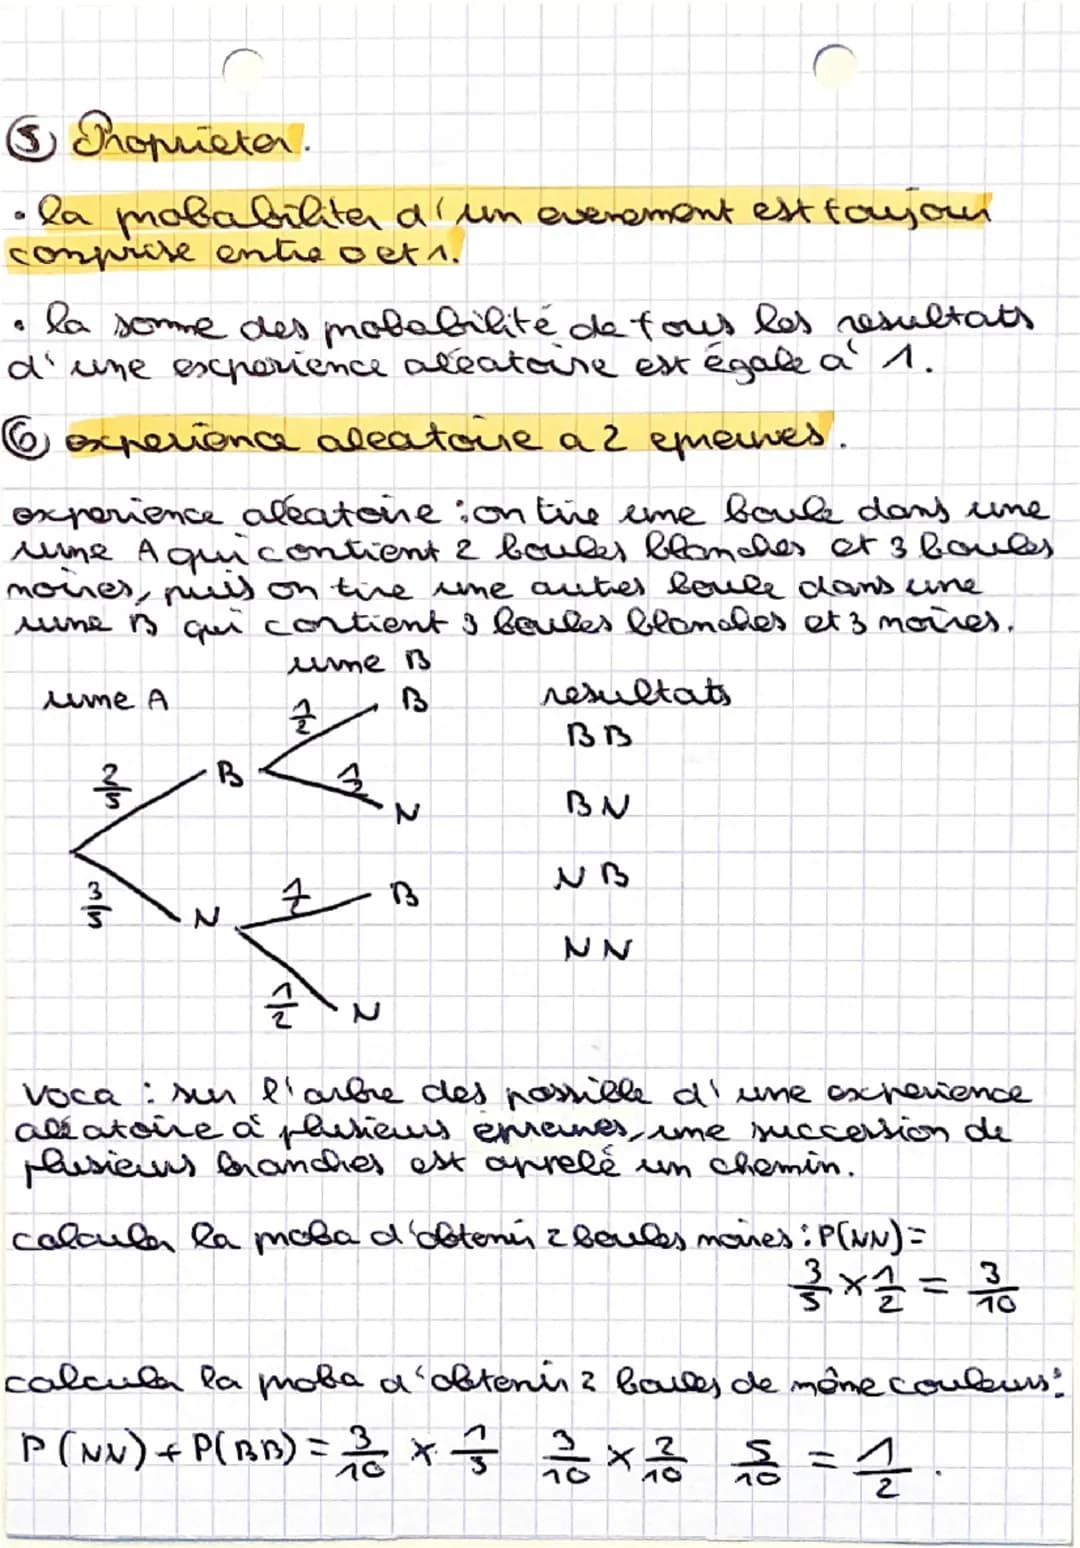 ⑤ Proprieter.
• la probabiliter d'un evenement est toujour
comprise entre 0 et 1.
• la somme des probabilité de tous les resultats
d'une experience aléatoire est égale à 1.
⑥ experience aleatoire a 2 epreuves.
experience aléatoire : on tire une boule dans une
urne A qui contient 2 boules blanches et 3 boules
noires, puis on tire une autres boule dans une
urne B qui contient 3 boules blanches et 3 noires.
urne B
urne A
resultats
1/2 B
BB
2/5 B
1/2 N
BN
3/5 N
1/2 B
NB
NN
1/2 N
voca : sur l'arbre des possible d'une experience
aléatoire à plusieurs épreuves, une succession de
plusieurs branches est appelé un chemin.
calculer la proba d'obtenir 2 boules noires : P(NN) =
3/5 × 1/2 = 3/10
calculer la proba d'obtenir 2 boules de même couleurs :
P(NN) + P(BB) = 3/10 × 1/5 3/10 × 2/10 5/10 = 1/2.